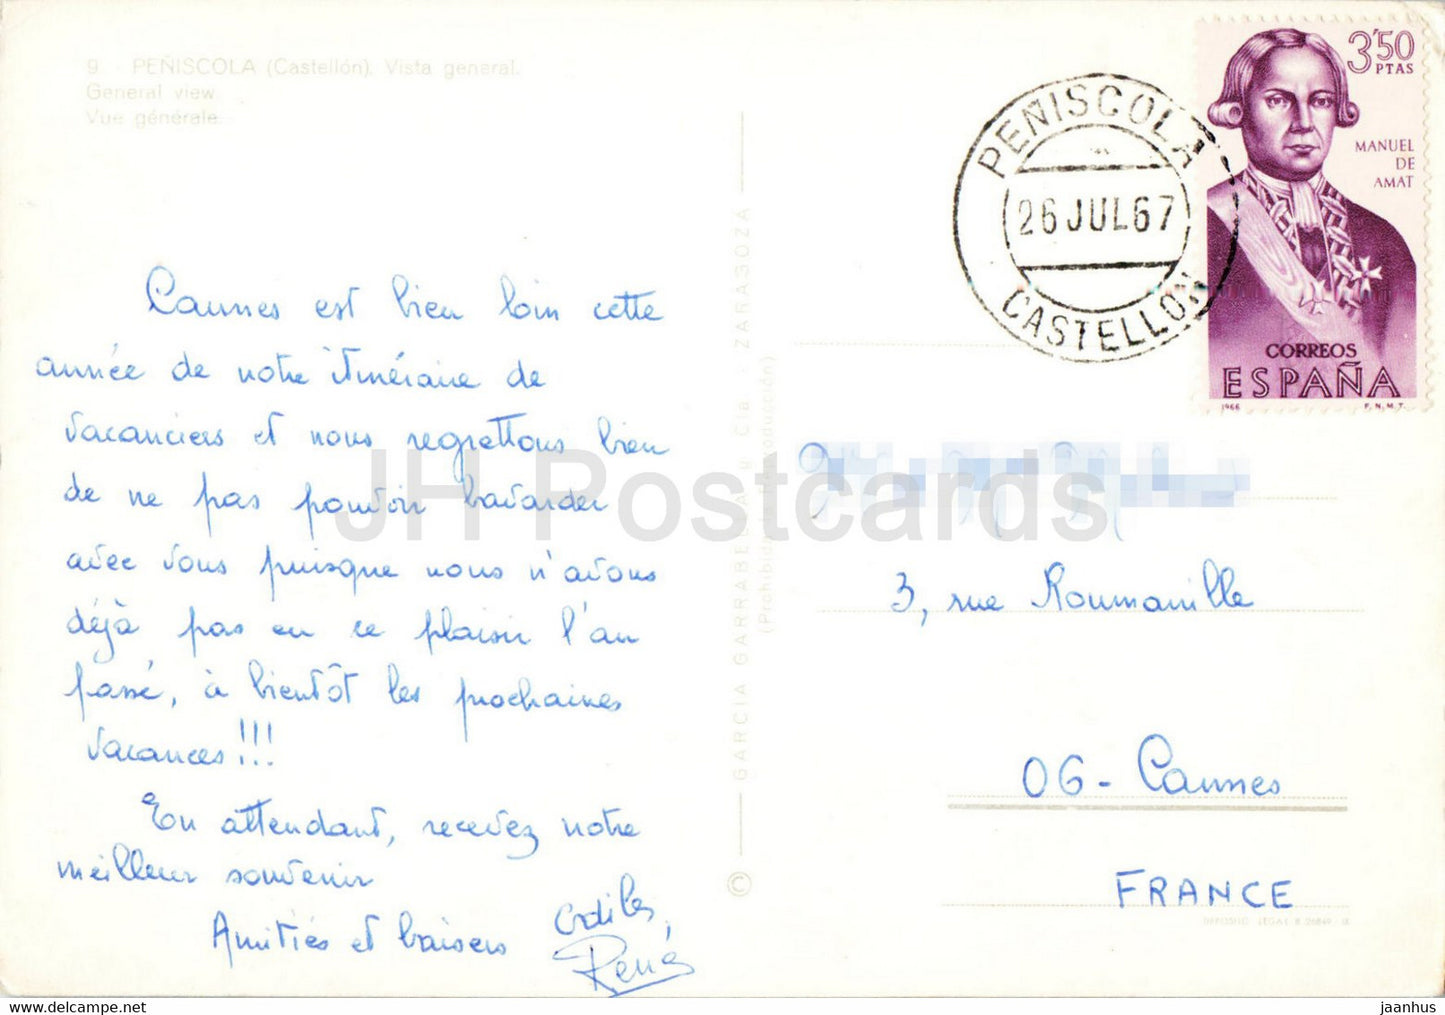 9 - PEÑISCOLA (Castellón). Vista general.
General view
Vue générale.
Cannes est bien loin cette
année de notre itinéraire de
vacanciers et nous regrettons bien
de ne pas pouvoir bavarder
avec vous puisque nous n'avons
déjà pas eu ce plaisir l'an
passé, à bientôt les prochaines
vacances!!!
En attendant, recevez notre
meilleur souvenir
Amitiés et baisers
René
© GARCIA GARRABELLA y Cia. - ZARAGOZA
(Prohibida la reproducción)
PEÑISCOLA
26 JUL 67
CASTELLON
3'50
PTAS
MANUEL
DE
AMAT
CORREOS
ESPAÑA
1966 F.N.M.T.
3, rue Roumanille
06 - Cannes
FRANCE
DEPOSITO LEGAL B. 26849 - IX
JH Postcards
https://jhpostcards.com
jaanhus